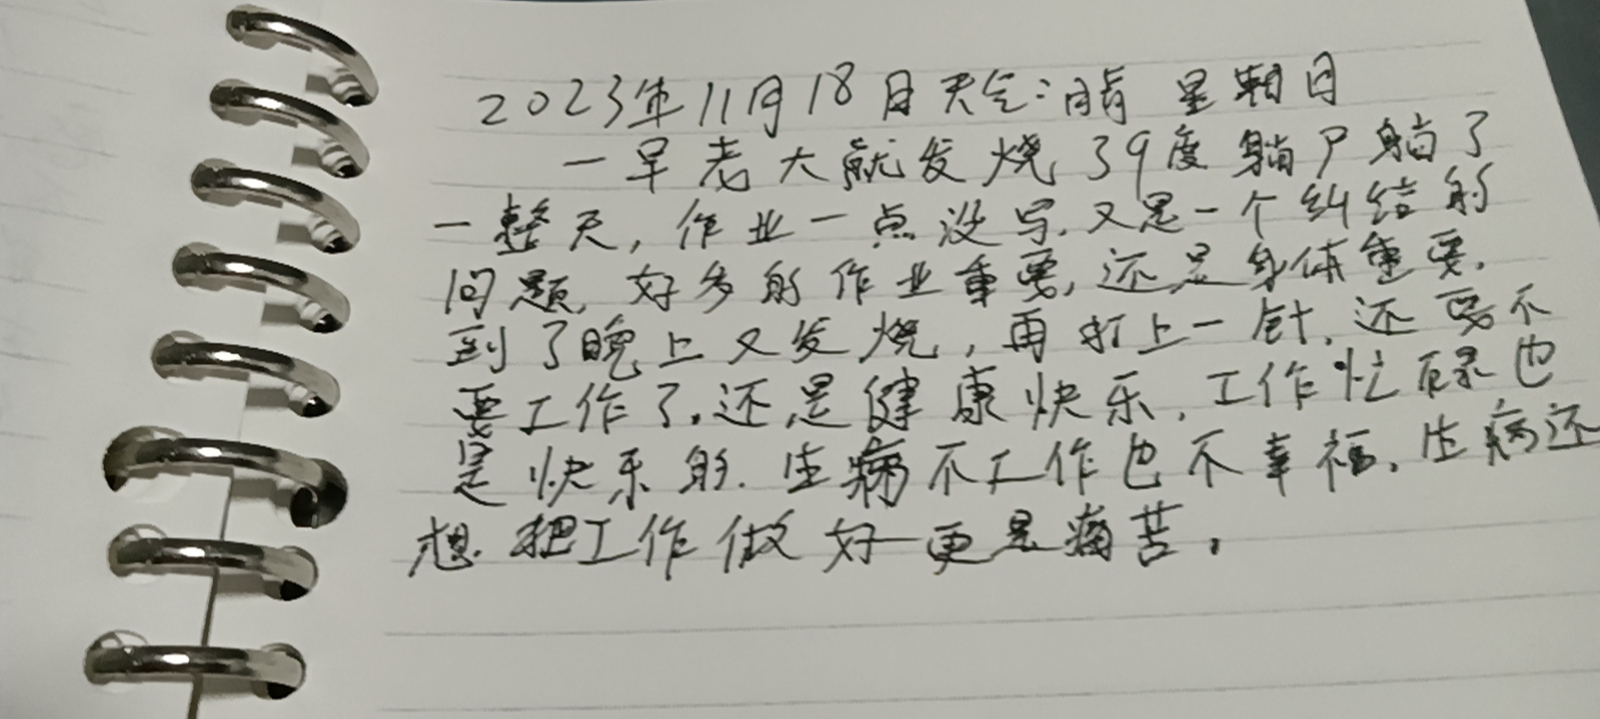 2023年11月18日天气:晴 星期日
一早老大就发烧39度躺尸躺了
一整天,作业一点没写.又是一个纠结的
问题,好多的作业重要,还是身体重要.
到了晚上又发烧,再打上一针,还要不
要工作了,还是健康快乐,工作忙碌也
是快乐的.生病不工作也不幸福,生病还
想把工作做好更是痛苦.